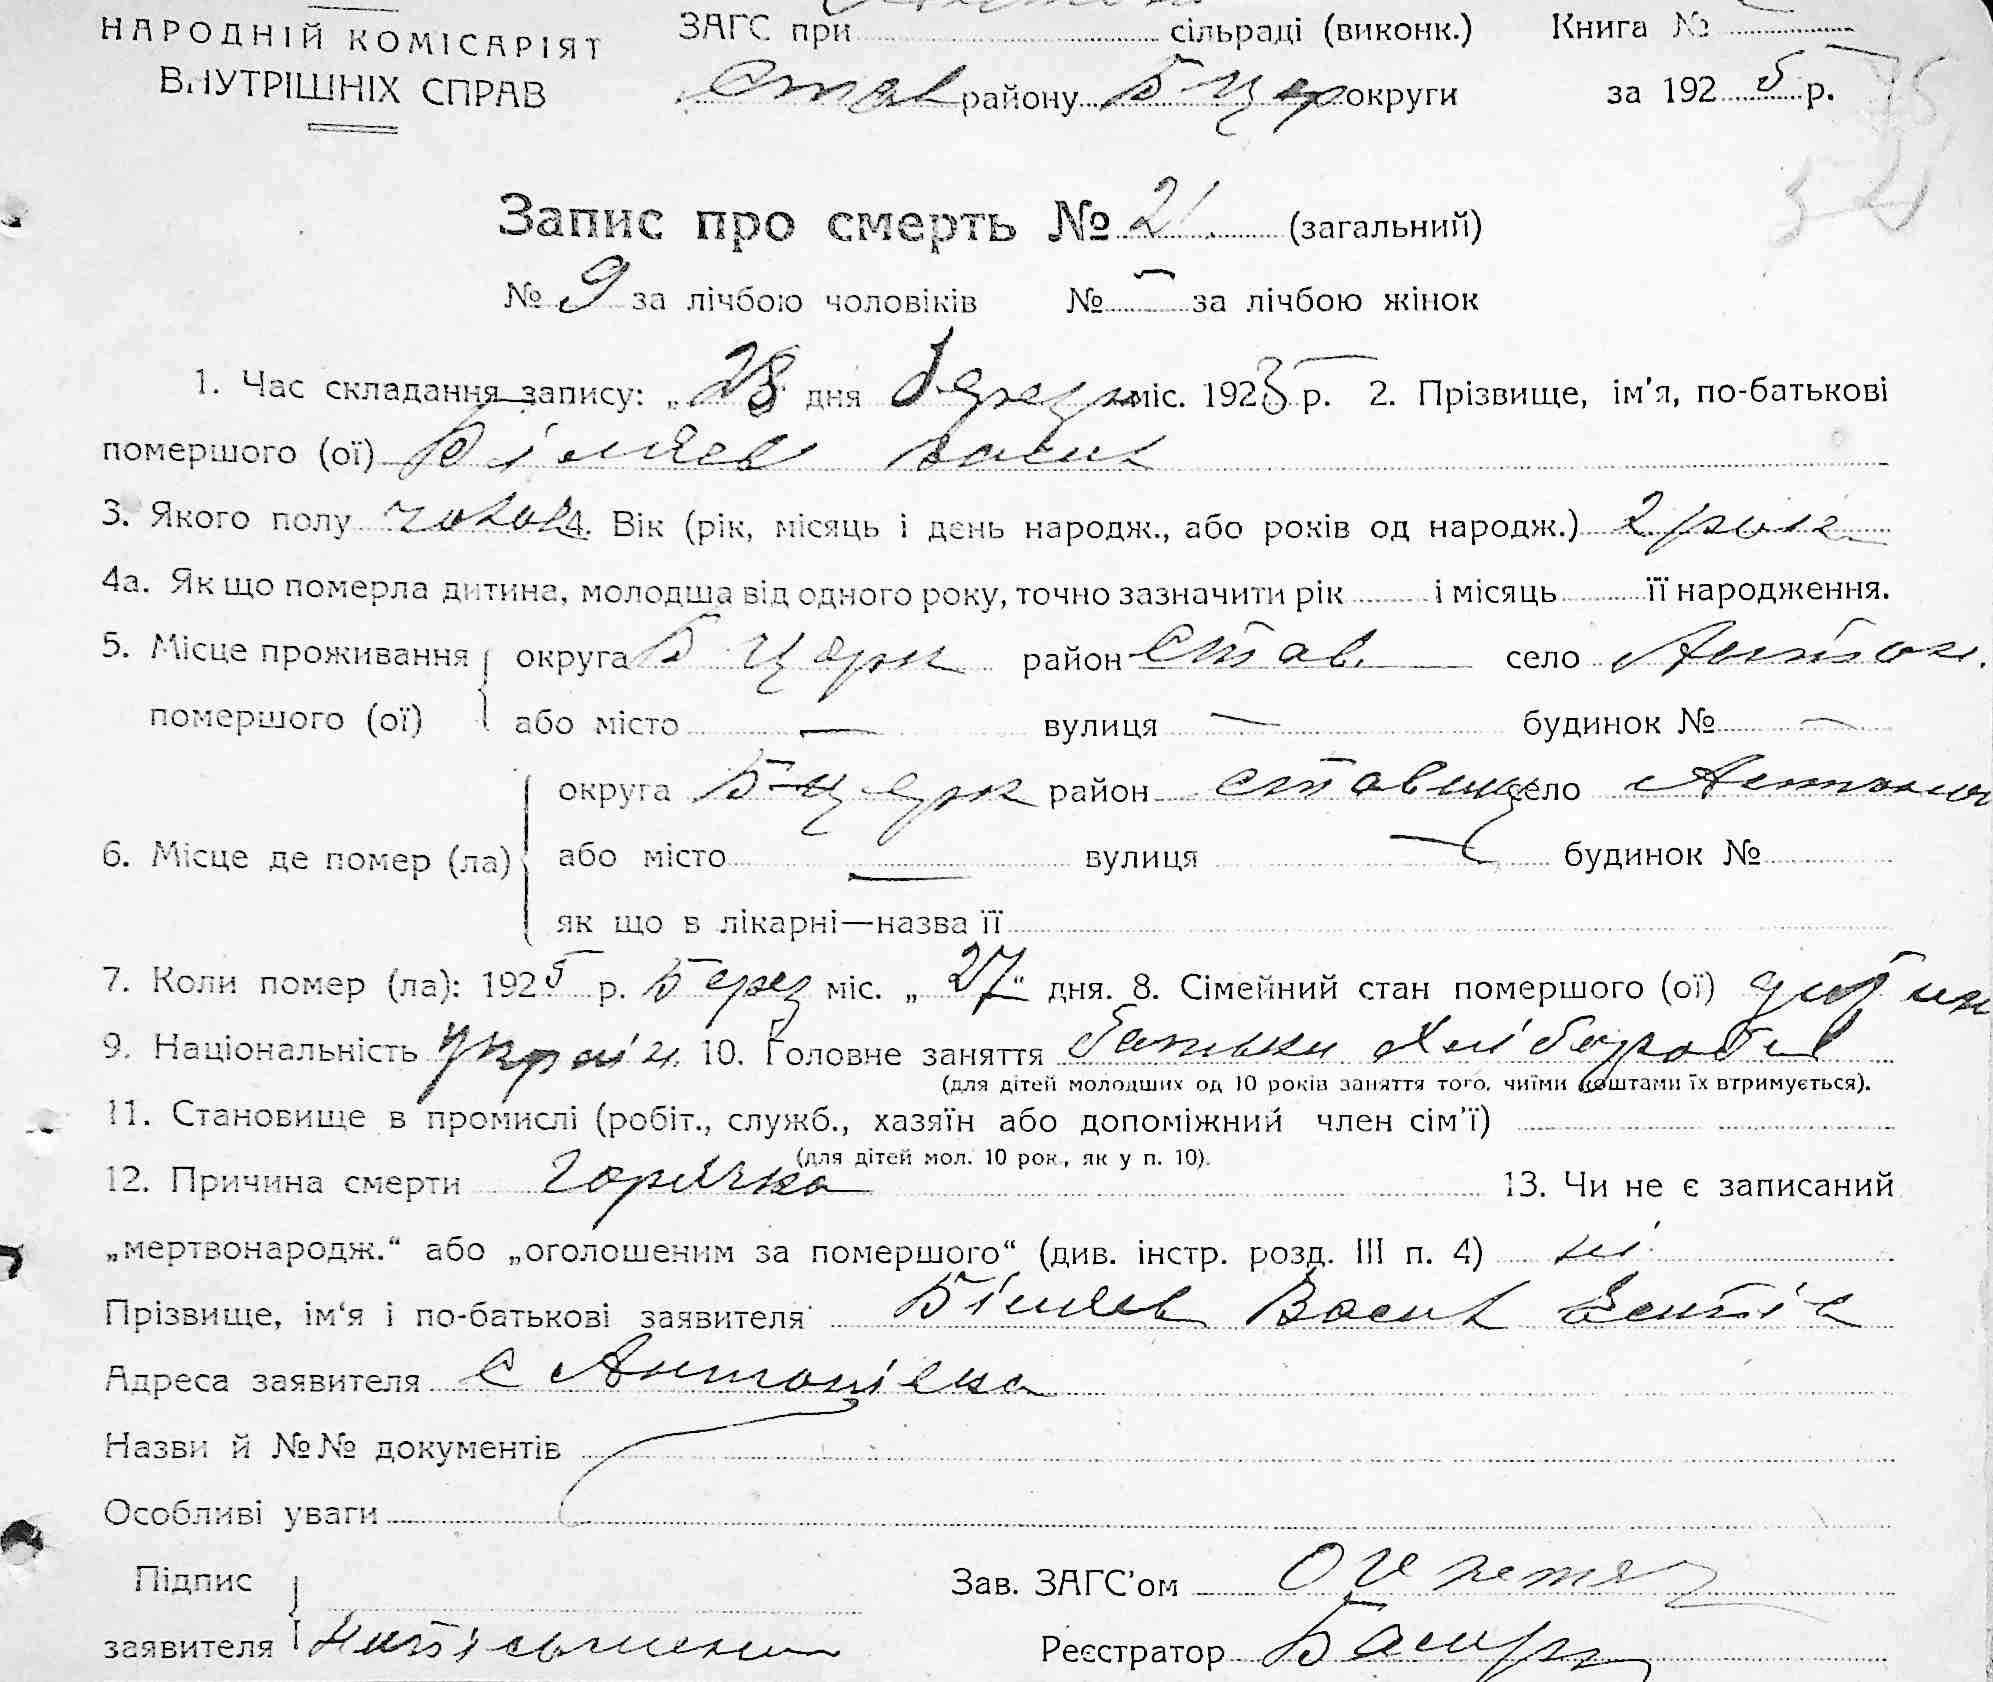 НАРОДНІЙ КОМІСАРІЯТ
ВНУТРІШНІХ СПРАВ
ЗАГС при сільраді (виконк.) Книга №
Став району Б Цер округи за 1925 р.
Запис про смерть № 21 (загальний)
№ 9 за лічбою чоловіків № — за лічбою жінок
1. Час складання запису: „28 дня берез міс. 1925 р. 2. Прізвище, ім'я, по-батькові
помершого (ої) Біляєв Васил
3. Якого полу чолов 4. Вік (рік, місяць і день народж., або років од народж.) 2 роки
4а. Як що померла дитина, молодша від одного року, точно зазначити рік і місяць її народження.
5. Місце проживання помершого (ої) округа Б Церк район Став. село Антон.
або місто — вулиця — будинок № —
6. Місце де помер (ла) округа Б-Церк район Ставищ село Антонов
або місто — вулиця — будинок №
як що в лікарні—назва її
7. Коли помер (ла): 1925 р. Берез міс. „27“ дня. 8. Сімейний стан помершого (ої) дитин
9. Національність україн. 10. Головне заняття Батьки Хлібороби
(для дітей молодших од 10 років заняття того, чиїми коштами їх втримується).
11. Становище в промислі (робіт., служб., хазяїн або допоміжний член сім'ї)
(для дітей мол. 10 рок., як у п. 10).
12. Причина смерти Горячка 13. Чи не є записаний
„мертвонародж.“ або „оголошеним за помершого“ (див. інстр. розд. III п. 4) ні
Прізвище, ім'я і по-батькові заявителя Біляєв Васил
Адреса заявителя с Антонівка
Назви й №№ документів
Особливі уваги
Підпис
заявителя
Зав. ЗАГС'ом
Реєстратор